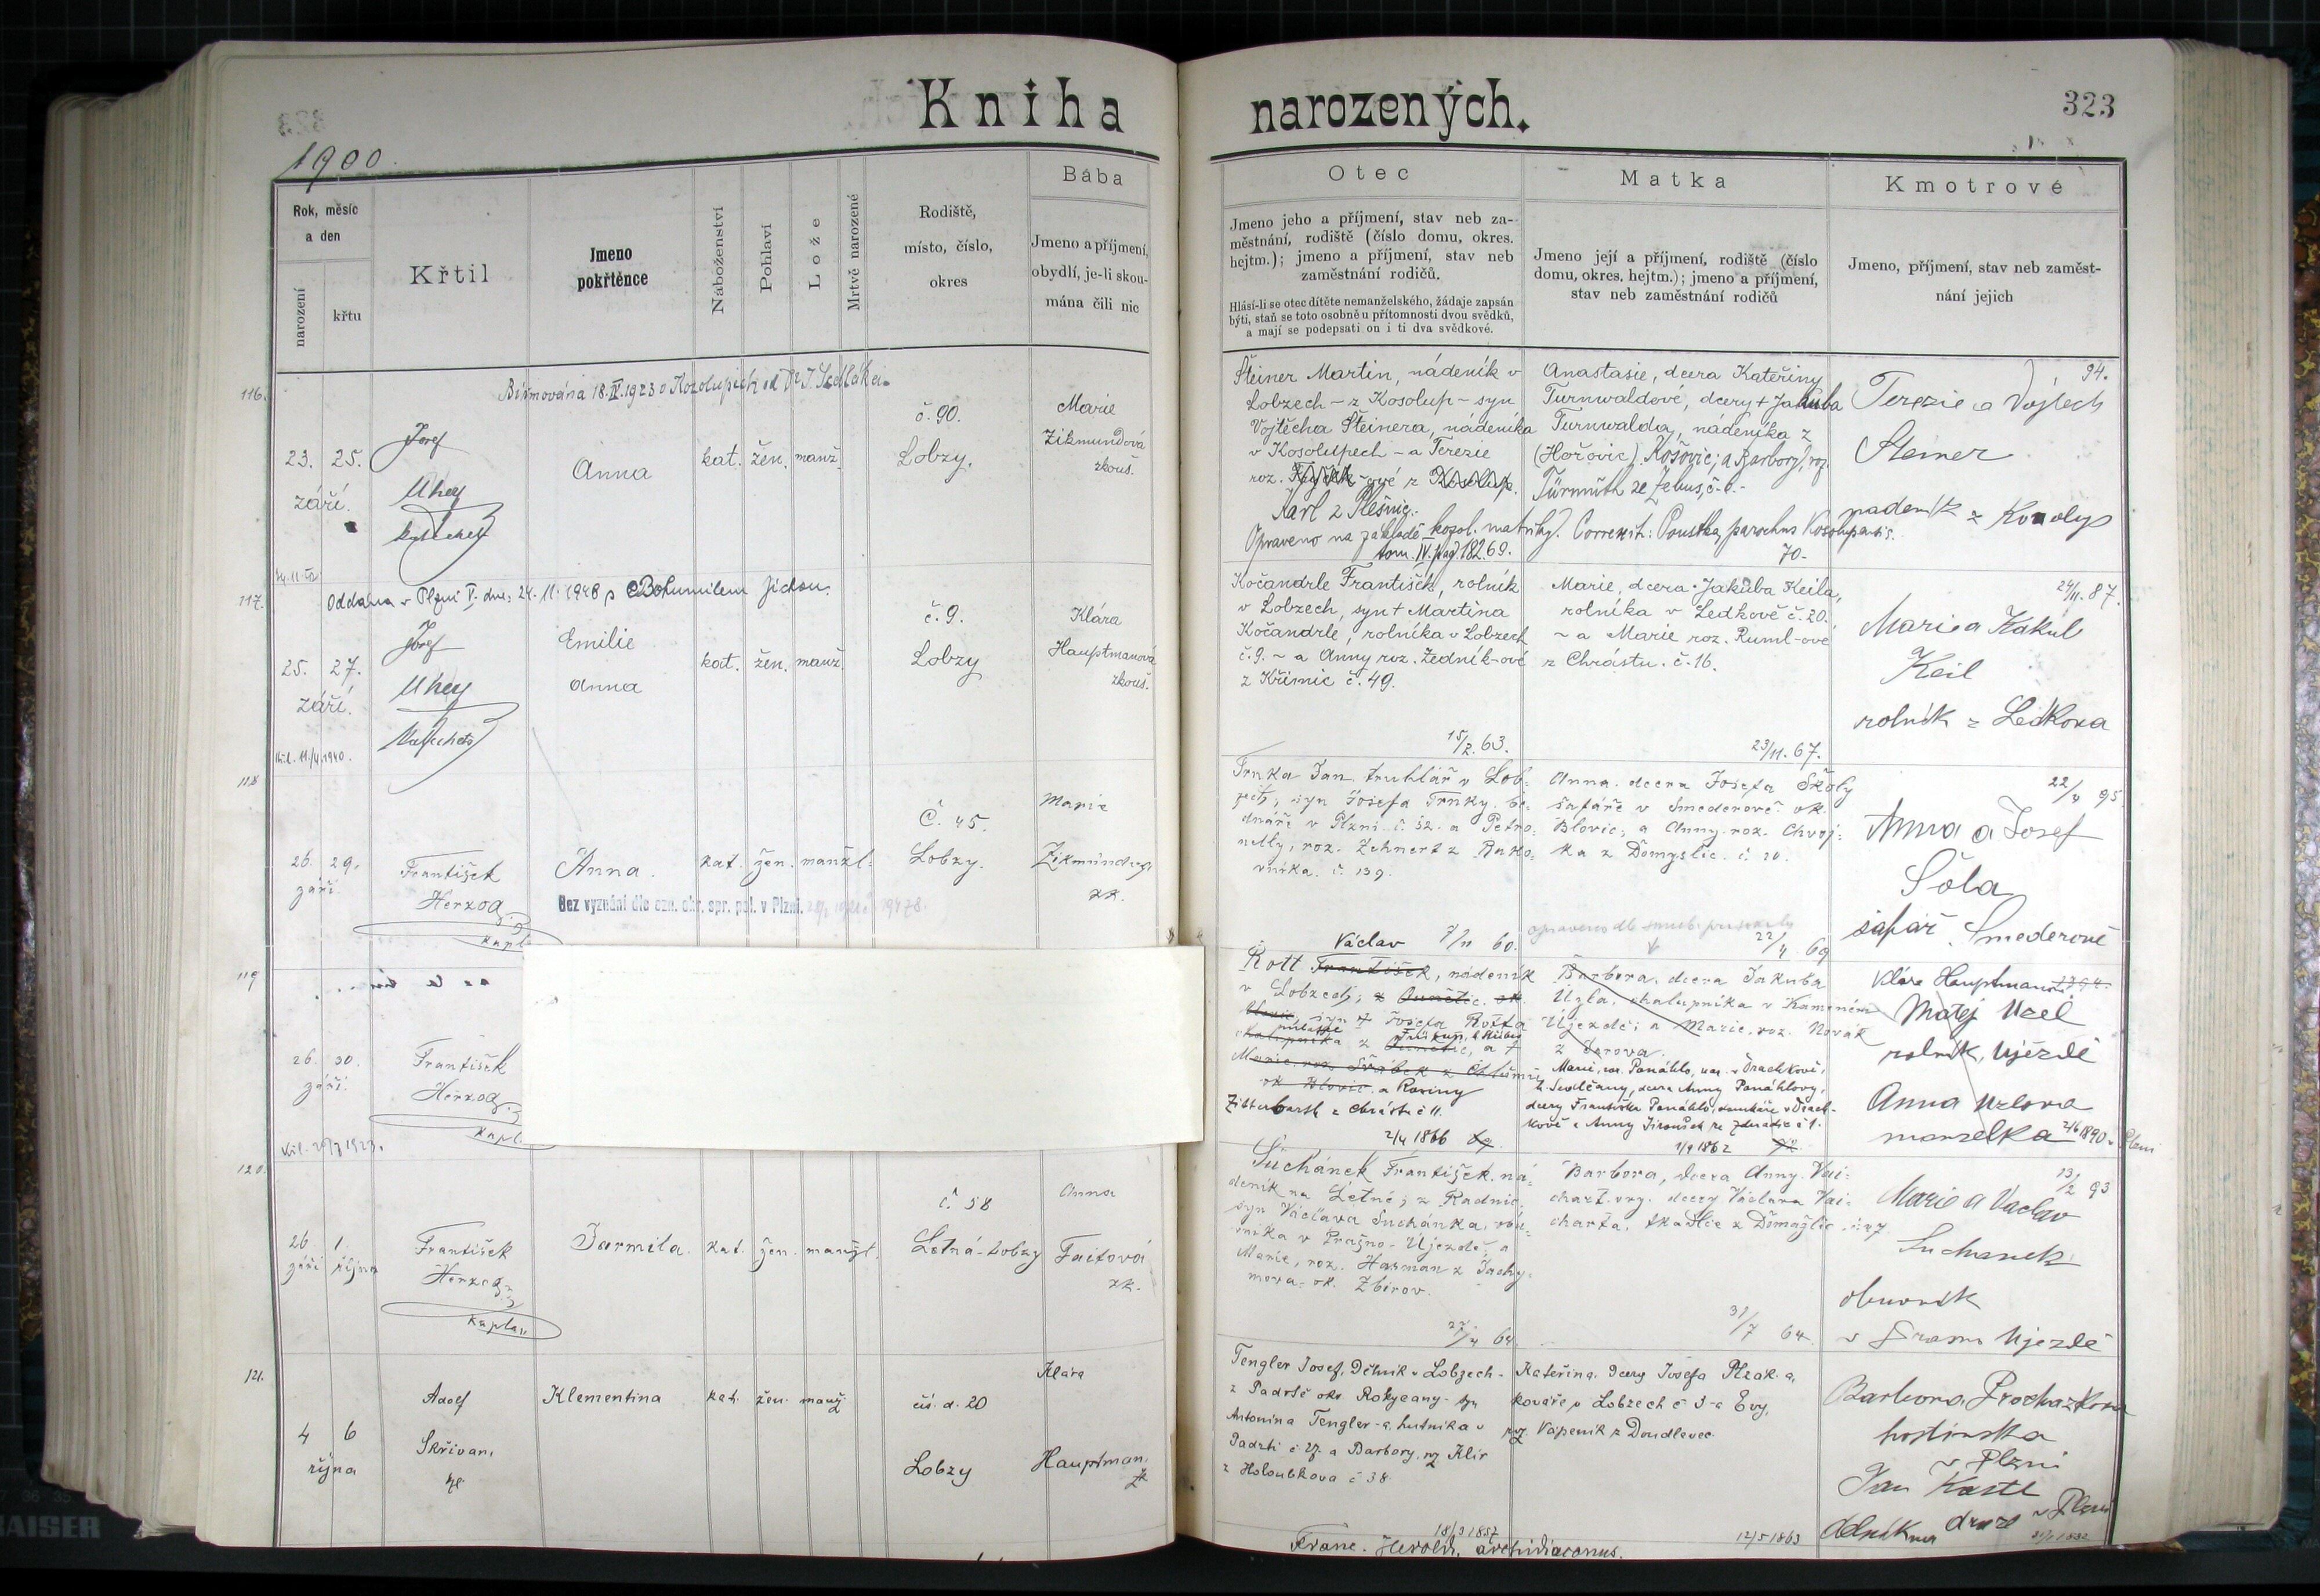 Kniha
narozených.
323
1900.
Rok, měsíc
a den
narození
křtu
Křtil
Jmeno
pokřtěnce
Náboženství
Pohlaví
Lože
Mrtvě narozené
Rodiště,
místo, číslo,
okres
Bába
Jmeno a příjmení,
obydlí, je-li skou-
mána čili nic
Otec
Jmeno jeho a příjmení, stav neb za-
městnání, rodiště (číslo domu, okres.
hejtm.); jmeno a příjmení, stav neb
zaměstnání rodičů.
Hlásí-li se otec dítěte nemanželského, žádaje zapsán
býti, staň se toto osobně u přítomnosti dvou svědků,
a mají se podepsati on i ti dva svědkové.
Matka
Jmeno její a příjmení, rodiště (číslo
domu, okres. hejtm.); jmeno a příjmení,
stav neb zaměstnání rodičů
Kmotrové
Jmeno, příjmení, stav neb zaměst-
nání jejich
116.
Biřmována 18.IV.1923 v Kozolupích od Dr J. Sedláka
23. 25.
září.
Josef
Uhey
Anna
kat. žen. manž.
č. 90.
Lobzy.
Marie
Zikmundová
zkouš.
Šteiner Martin, nádeník v
Lobzech - z Kosolup - syn
Vojtěcha Šteinera, nádeníka
v Kosolupech - a Terezie
roz. -ové z Kosolup.
Karl z Plešnic.
Opraveno na základě kozol. matriky. Correxit: Poustka, parochus
tom. IV. pag. 182 69.
Anastasie, dcera Kateřiny
Turnwaldové, dcery + Jakuba
Turnwalda, nádeníka z
(Hořovic) Košovic; a Barbory, roz.
70-
94.
Terezie a Vojtech
Steiner
nadeník z
117.
Oddána v Plzni V. dne: 24.11.1948 s Bohumilem Jichou.
25. 27.
září.
Josef
Uhey
Emilie
Anna
kat. žen. manž.
č. 9.
Lobzy
Klára
Hauptmanová
zkouš.
Kočandrle František, rolník
v Lobzech, syn + Martina
Kočandrle, rolníka v Lobzech
č. 9. - a Anny roz. Zedník-ové
z Křimic č. 49.
15/2. 63.
Marie, dcera Jakuba Keila,
rolníka v Ledkově č. 20.
- a Marie roz. Ruml-ové
z Chrástu. č. 16.
23/11. 67.
24/11. 87.
Marie a Kakub
Keil
rolník z Ledkova
118
26. 29.
září.
František
Herzog
kapl
Anna.
Bez vyznání dle ozn. okr. spr. pol. v Plzni.
kat. žen. manžl.
Č. 45.
Lobzy.
Marie
Zikmundová
zk.
Trnka Jan. truhlář v Lob-
zích, syn Josefa Trnky. be-
dnáře v Plzni č. 32. a Petro-
nelly, roz. Zehnert z Rako-
vníka. č. 139.
7/11 60.
Anna. dcera Josefa Školy
šafáře v Smederově. ok.
Blovic, a Anny. roz. Chvoj-
ka z Domyslic. č. 20.
22/4 69
22/4 95
Anna a Josef
Šola
šafář. Smederově
119
26. 30.
září.
František
Herzog
kapl.
Václav
Rott František, nádeník
v Lobzech; z ok.
syn + Josefa Rotta
chalupníka z a +
ok Blovic, a Rosiny
z Chrástu č 11.
2/4 1866
Barbora, dcera Jakuba
Úzla, chalupníka v Kamením
Újezdě; a Marie, roz. Novák
z Dorova.
1/9 1862
Klára Hauptmanová
Matěj Uzel
rolník, Ujezdě
Anna Uzlova
manželka 2/6 1890 v Plzni
120.
26 1.
září října
František
Herzog
kaplan
Jarmila.
kat. žen. manžl.
č. 58
Letná-Lobzy
Anna
Faitová
zk.
Suchánek František. ná-
deník na Letné; z Radnic,
syn Václava Suchánka,
v Prašno-Újezdě, a
Marie, roz. Hasman z Jachy-
mova. ok. Zbirov.
27/4 64.
Barbora, dcera Anny. Vai-
chart. svy. dcery Václava Vai-
charta, tkadlce z Domažlic.
31/7 64
13/2 93
Marie a Vaclav
Suchanek
obuvník
v Prasno Ujezdě
121.
4 6
října
Adolf
Skřivan.
Klementina
kat. žen. manž
čís. d. 20
Lobzy
Klára
Hauptman.
zk
Tengler Josef, Dělník v Lobzech -
z Padrtě okr Rokycany - syn
Antonína Tengler-a, hutníka v
Padrti č 27. a Barbory, roz Klír
z Holoubkova č 38.
18/3 1857
Kateřina. Dcery Josefa Plzák-a,
kováře v Lobzech č 3-a Evy,
roz. Vápeník z Doudlevec.
12/5 1863
Barbora Prochazkova
hostinska
v Plzni
Jan Kastl
dělník na draze v Plzni
Franc. Herold, archidiaconus.